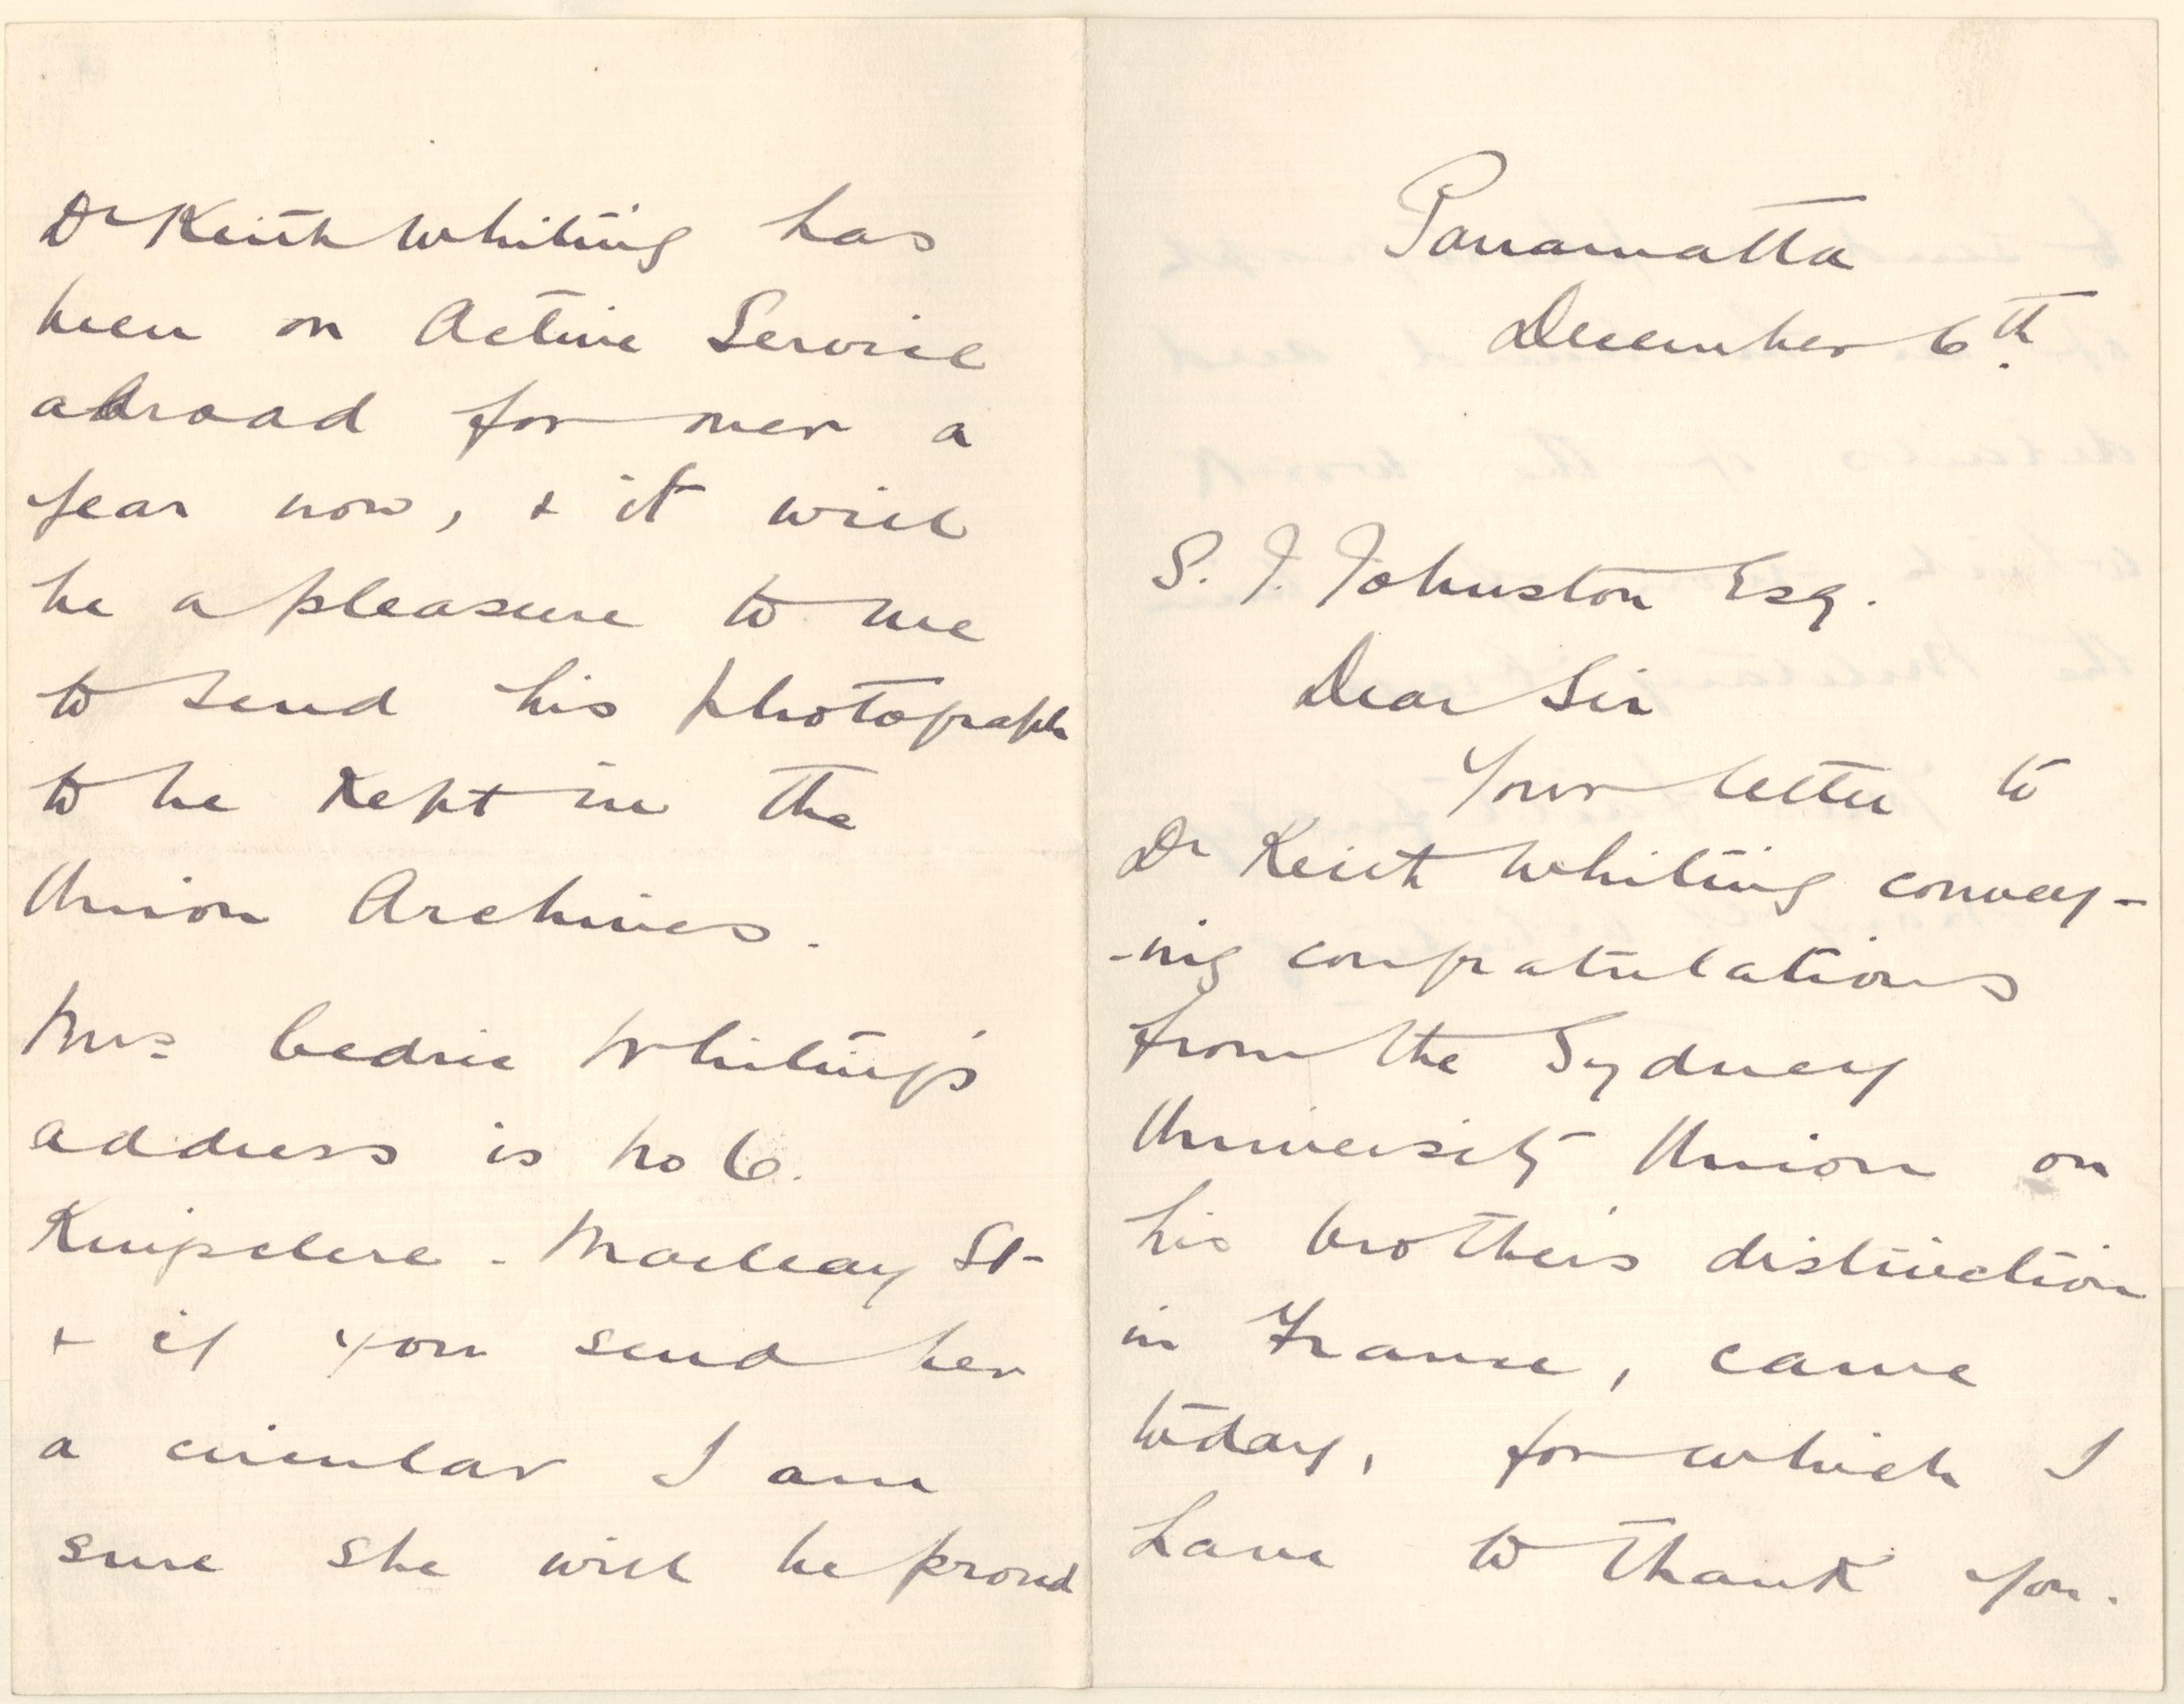 Parramatta
December 6th.
S. J. Johnston Esq.
Dear Sir
Your letter to
Dr Keith Whiting convey-
-ing congratulations
from the Sydney
University Union on
his brothers distinction
in France, came
today, for which I
have to thank you.
Dr Keith Whiting has
been on Active Service
abroad for over a
year now, & it will
be a pleasure to me
to send his photograph
to be kept in the
Union Archives.
Mrs Cedric Whiting's
address is No 6.
Kingsclere - Macleay St-
& if you send her
a circular I am
sure she will be proud